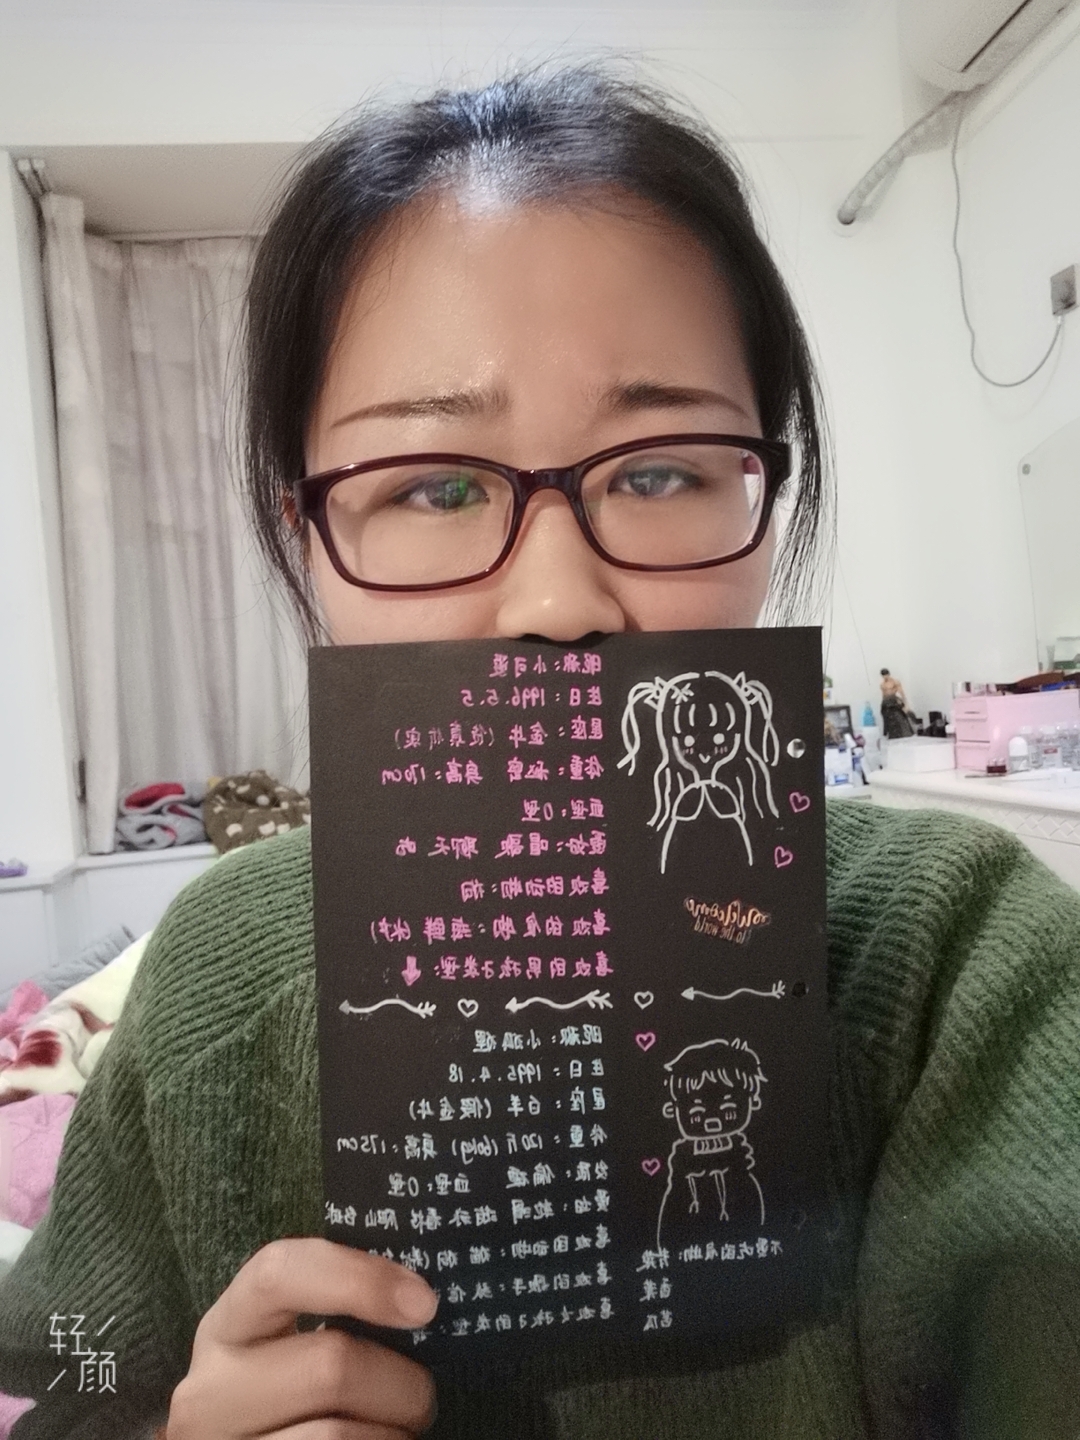 昵称：小可爱
生日：1996.5.5
星座：金牛（货真价实）
体重：秘密 身高：170cm
血型：O型
爱好：唱歌 聊天 吃
喜欢的动物：狗
喜欢的食物：海鲜
喜欢的男孩子类型：
Welcome
to the world
昵称：小狐狸
生日：1995.4.18
星座：白羊（假金牛）
体重：120斤（60kg）身高：175cm
发质：偏硬 血型：O型
爱好：爬山 台球
喜欢的动物：猫 狗
喜欢的歌手：
喜欢女孩子的类型：
不爱吃的食物：芹菜
香菜
苦瓜
轻颜